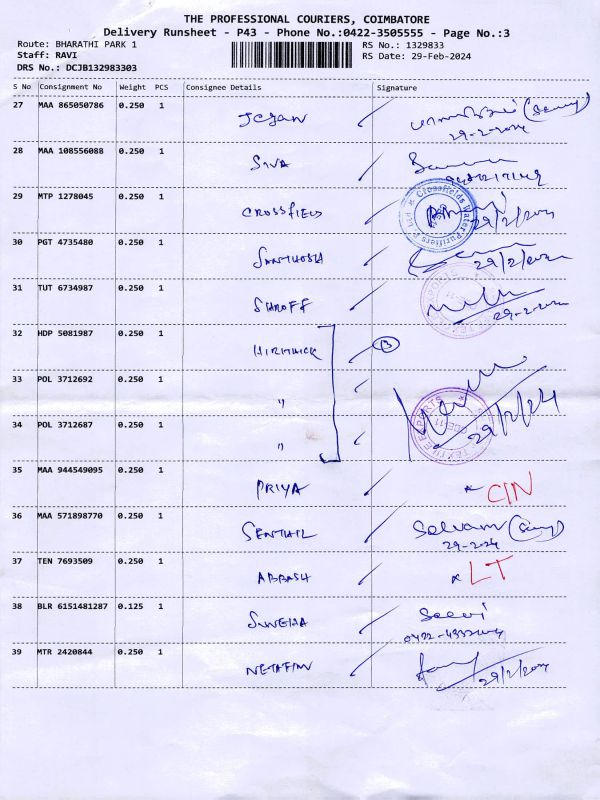 THE PROFESSIONAL COURIERS, COIMBATORE
Delivery Runsheet - P43 - Phone No.:0422-3505555 - Page No.:3
Route: BHARATHI PARK 1 RS No.: 1329833
Staff: RAVI RS Date: 29-Feb-2024
DRS No.: DCJB132983303
S No Consignment No Weight PCS Consignee Details Signature
27 MAA 865050786 0.250 1 JEGAN
29-2-2024
28 MAA 108556088 0.250 1 SIVA
29 MTP 1278045 0.250 1 CROSSFIELD Crossfields Water Purifiers P Ltd 29/2/2024
30 PGT 4735480 0.250 1 SANTHOSH 29/2/2024
31 TUT 6734987 0.250 1 SHROFF 29-2-2024
32 HDP 5081987 0.250 1 HIRTHICK B
33 POL 3712692 0.250 1 "
34 POL 3712687 0.250 1 " 29/2/24
35 MAA 944549095 0.250 1 PRIYA x CIN
36 MAA 571898770 0.250 1 SENTHIL Selvam
29-2-24
37 TEN 7693509 0.250 1 ABBASH x LT
38 BLR 6151481287 0.125 1 SUNEHA Selvi
39 MTR 2420844 0.250 1 NETAFIM 29/2/2024